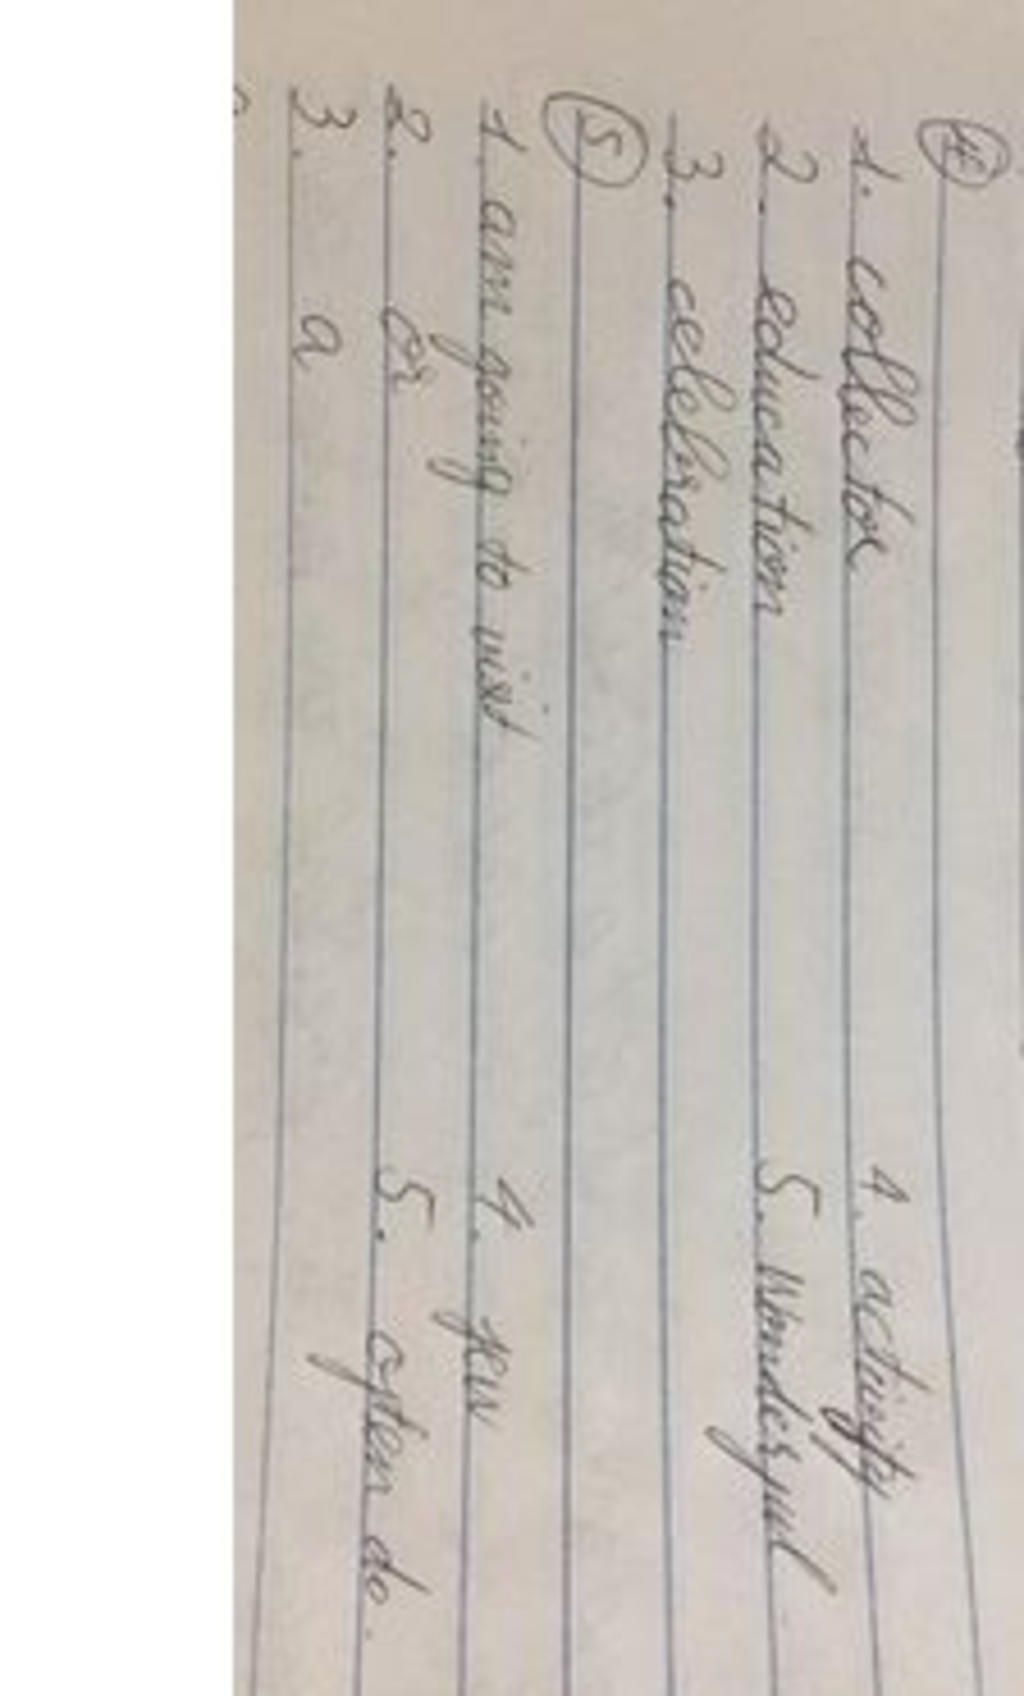 4
1. collector 4. activity
2. education 5. wonderful
3. celebration
5
1. am going to visit 4. few
2. or 5. often do.
3. a